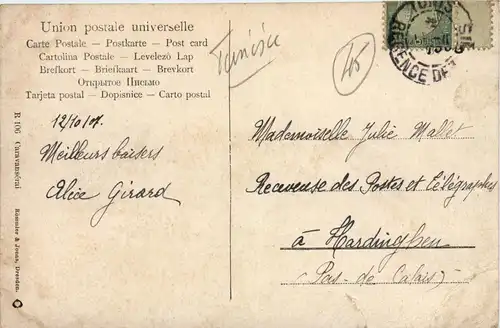 Union postale universelle
Carte Postale — Postkarte — Post card
Cartolina Postale — Levelező Lap
Brefkort — Briefkaart — Brevkort
Открытое Письмо
Tarjeta postal — Dopisnice — Carto postal
Tunisie
45
REGENCE DE
12/10/07.
Meilleurs baisers
Alice Girard
Mademoiselle Julie Mallet
Receveuse des Postes et Télégraphes
à Hardinghen
(Pas-de Calais)
R 106 Caravansérai
Römmler & Jonas, Dresden.